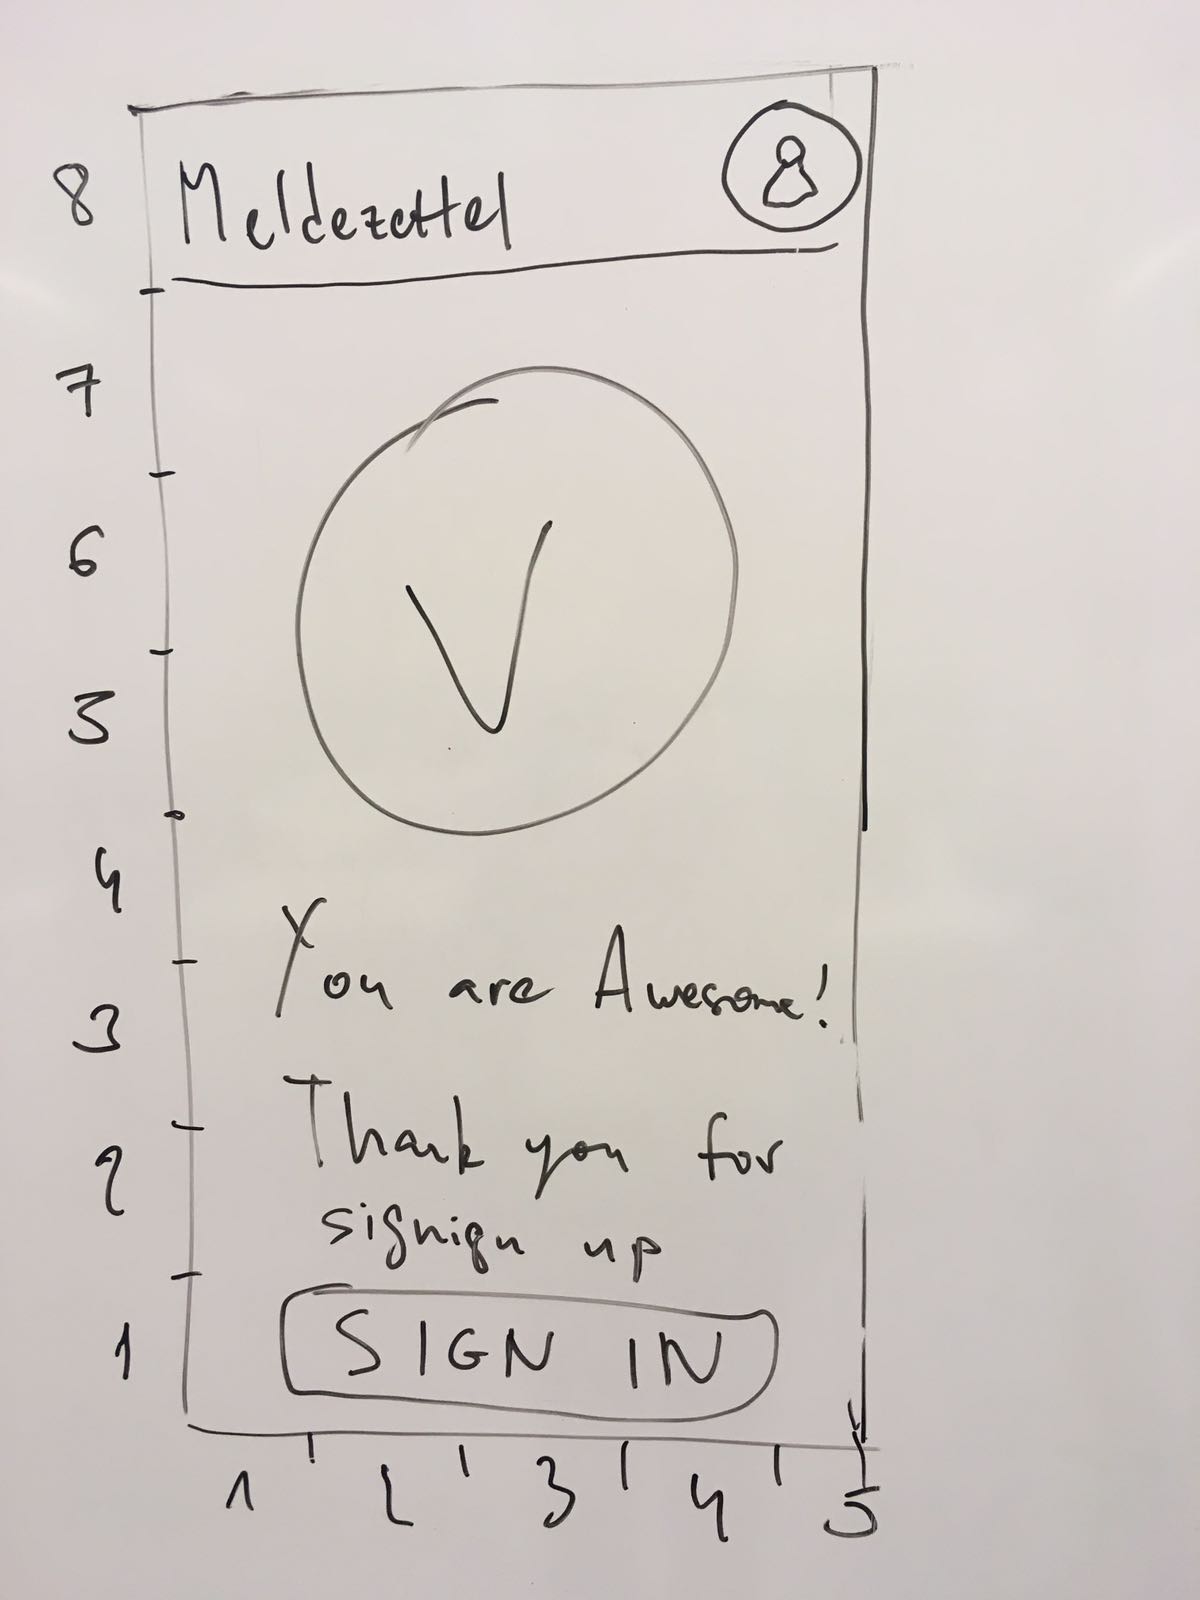 8 Meldezettel
7
6
5
4
You are Awesome!
3
Thank you for
2
signign up
SIGN IN
1
1 2 3 4 5